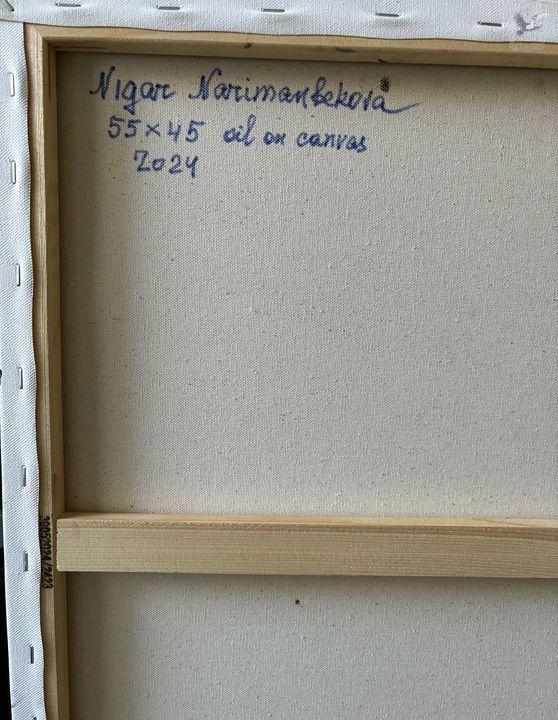 Nıgar Narimanbekova
55×45 oil on canvas
2024